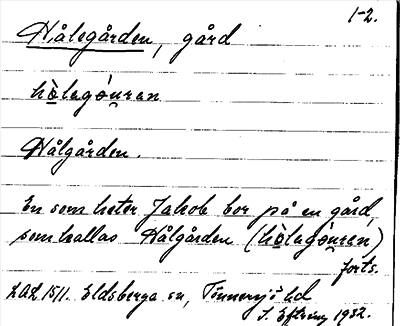 1-2.
Hålegården, gård
hòlegó̱u̯ren
Hålgården.
En som heter Jakob bor på en gård,
som kallas Hålgården (hòlegó̱u̯ren)
forts.
LAL 1511. Eldsberga sn, Tönnersjö hd
S. Eftring 1932.